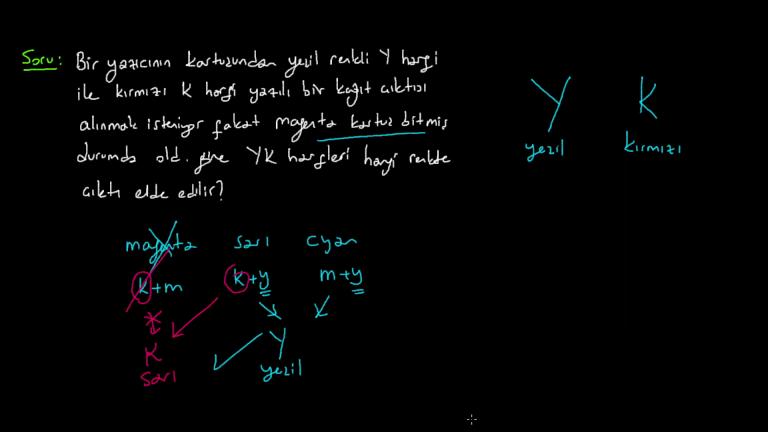 Soru: Bir yazıcının kartuşundan yeşil renkli Y harfi
ile kırmızı K harfi yazılı bir kağıt çıktısı
alınmak isteniyor fakat magenta kartuş bitmiş
durumda old. göre YK harfleri hangi renkte
çıktı elde edilir?
Y K
yeşil kırmızı
magenta sarı cyan
k+m k+y m+y
K Y
sarı yeşil